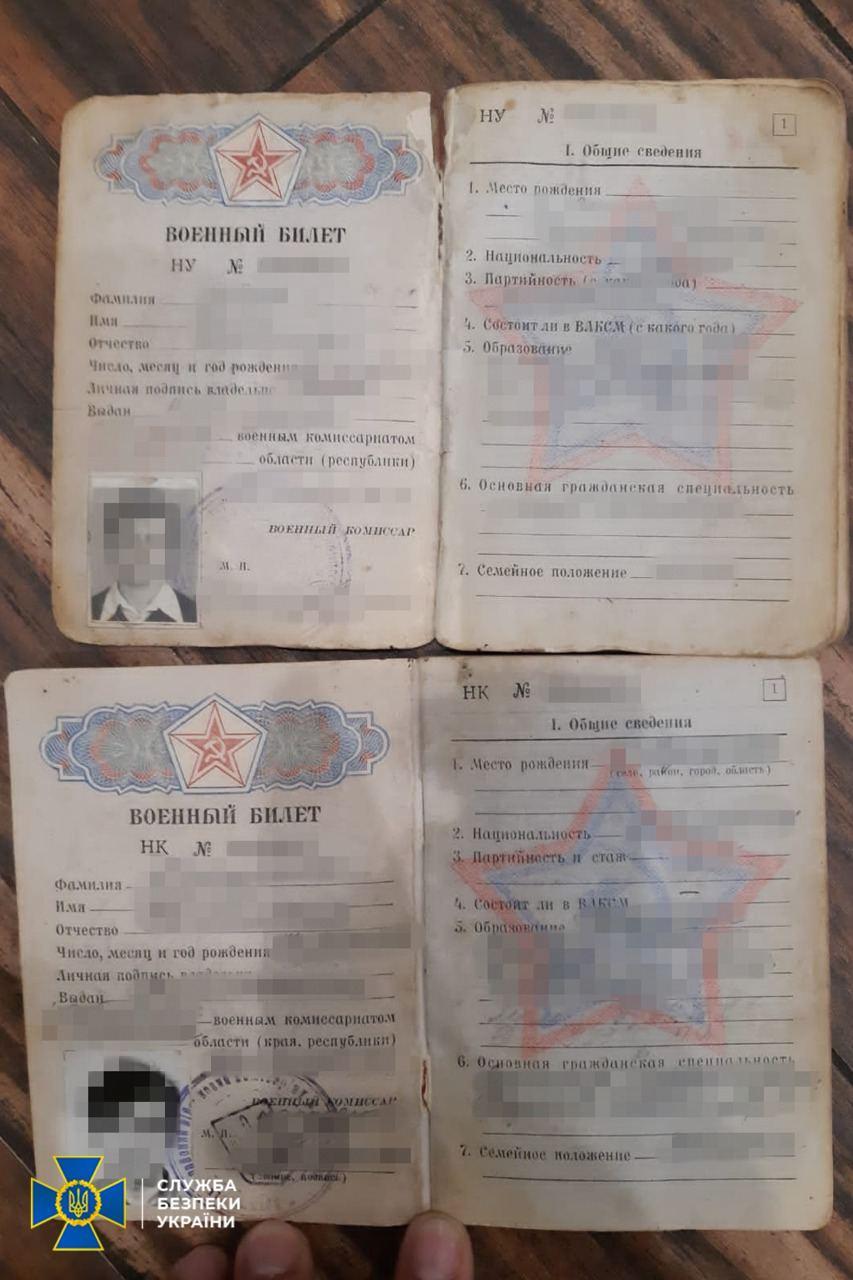 ВОЕННЫЙ БИЛЕТ
НУ №
Фамилия
Имя
Отчество
Число, месяц и год рождения
Личная подпись владельца
Выдан
военным комиссариатом
области (республики)
ВОЕННЫЙ КОМИССАР
М. П.
НУ №
1
I. Общие сведения
1. Место рождения
2. Национальность
3. Партийность
4. Состоит ли в ВЛКСМ (с какого года)
5. Образование
6. Основная гражданская специальность
7. Семейное положение
ВОЕННЫЙ БИЛЕТ
НК №
Фамилия
Имя
Отчество
Число, месяц и год рождения
Личная подпись
Выдан
военным комиссариатом
области (края, республики)
ВОЕННЫЙ КОМИССАР
М. П.
НК №
1
I. Общие сведения
1. Место рождения
(село, район, город, область)
2. Национальность
3. Партийность и стаж
4. Состоит ли в ВЛКСМ
5. Образование
6. Основная гражданская специальность
7. Семейное положение
СЛУЖБА
БЕЗПЕКИ
УКРАЇНИ